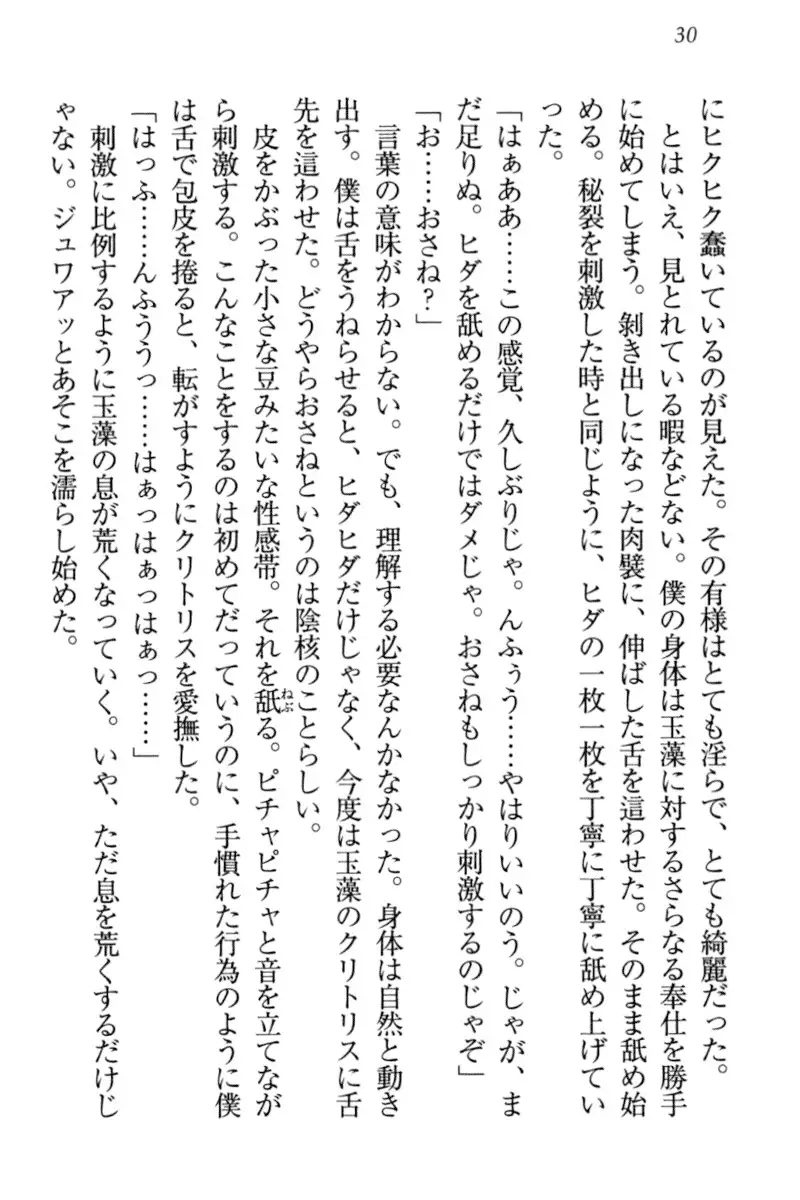 30
にヒクヒク蠢いているのが見えた。その有様はとても淫らで、とても綺麗だった。
とはいえ、見とれている暇などない。僕の身体は玉藻に対するさらなる奉仕を勝手
に始めてしまう。剝き出しになった肉襞に、伸ばした舌を這わせた。そのまま舐め始
める。秘裂を刺激した時と同じように、ヒダの一枚一枚を丁寧に丁寧に舐め上げてい
った。
「はぁああ……この感覚、久しぶりじゃ。んふぅう……やはりいいのう。じゃが、ま
だ足りぬ。ヒダを舐めるだけではダメじゃ。おさねもしっかり刺激するのじゃぞ」
「お……おさね?」
言葉の意味がわからない。でも、理解する必要なんかなかった。身体は自然と動き
出す。僕は舌をうねらせると、ヒダヒダだけじゃなく、今度は玉藻のクリトリスに舌
先を這わせた。どうやらおさねというのは陰核のことらしい。
皮をかぶった小さな豆みたいな性感帯。それを舐ねぶる。ピチャピチャと音を立てなが
ら刺激する。こんなことをするのは初めてだっていうのに、手慣れた行為のように僕
は舌で包皮を捲ると、転がすようにクリトリスを愛撫した。
「はっふ……んふううっ……はぁっはぁっはぁっ……」
刺激に比例するように玉藻の息が荒くなっていく。いや、ただ息を荒くするだけじ
ゃない。ジュワアッとあそこを濡らし始めた。